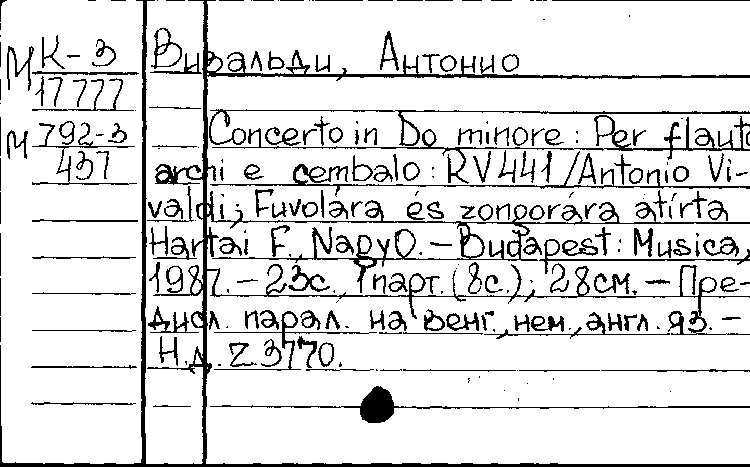 М К-3 Вивальди, Антонио
17777
М 792-3 Concerto in Do minore: Per flauto
437 archi e cembalo: RV441/Antonio Vi-
valdi; Fuvolára és zongorára átírta
Hartai F., Nagy O. — Budapest: Musica,
1987. — 23с., 1 парт. (8с.); 28см. — Пре-
дисл. парал. на венг., нем., англ. яз. —
Н.д. Z.3770.